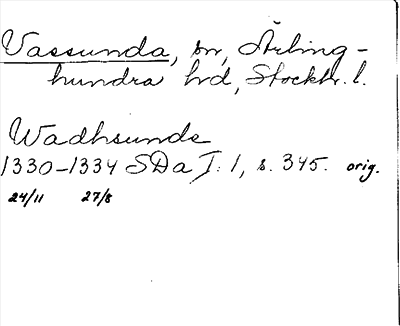 Vassunda, sn, Ärling-
hundra hd, Stockh. l.
Wadhsunde
1330-1334 SDa I: 1, s. 345. orig.
24/11 27/8